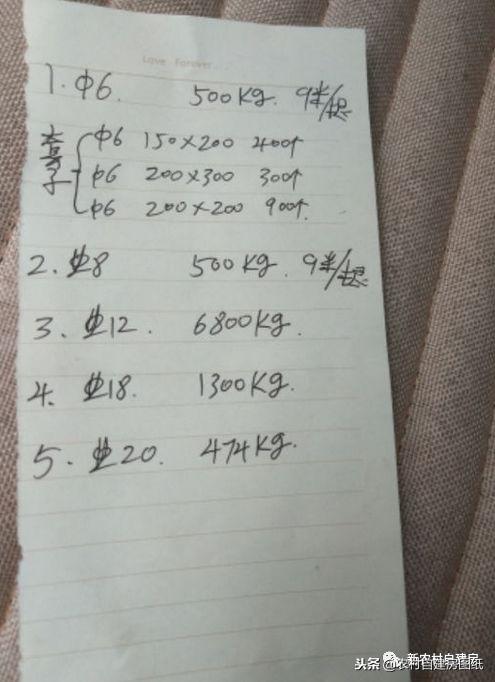 Love Forever
1. Φ6. 500Kg. 9米/根
套子
Φ6 150×200 400个
Φ6 200×300 300个
Φ6 200×200 900个.
2. 8 500Kg. 9米/根
3. 12. 6800Kg.
4. 18. 1300Kg.
5. 20. 474Kg.
新农村自建房
头条@农村自建房图纸